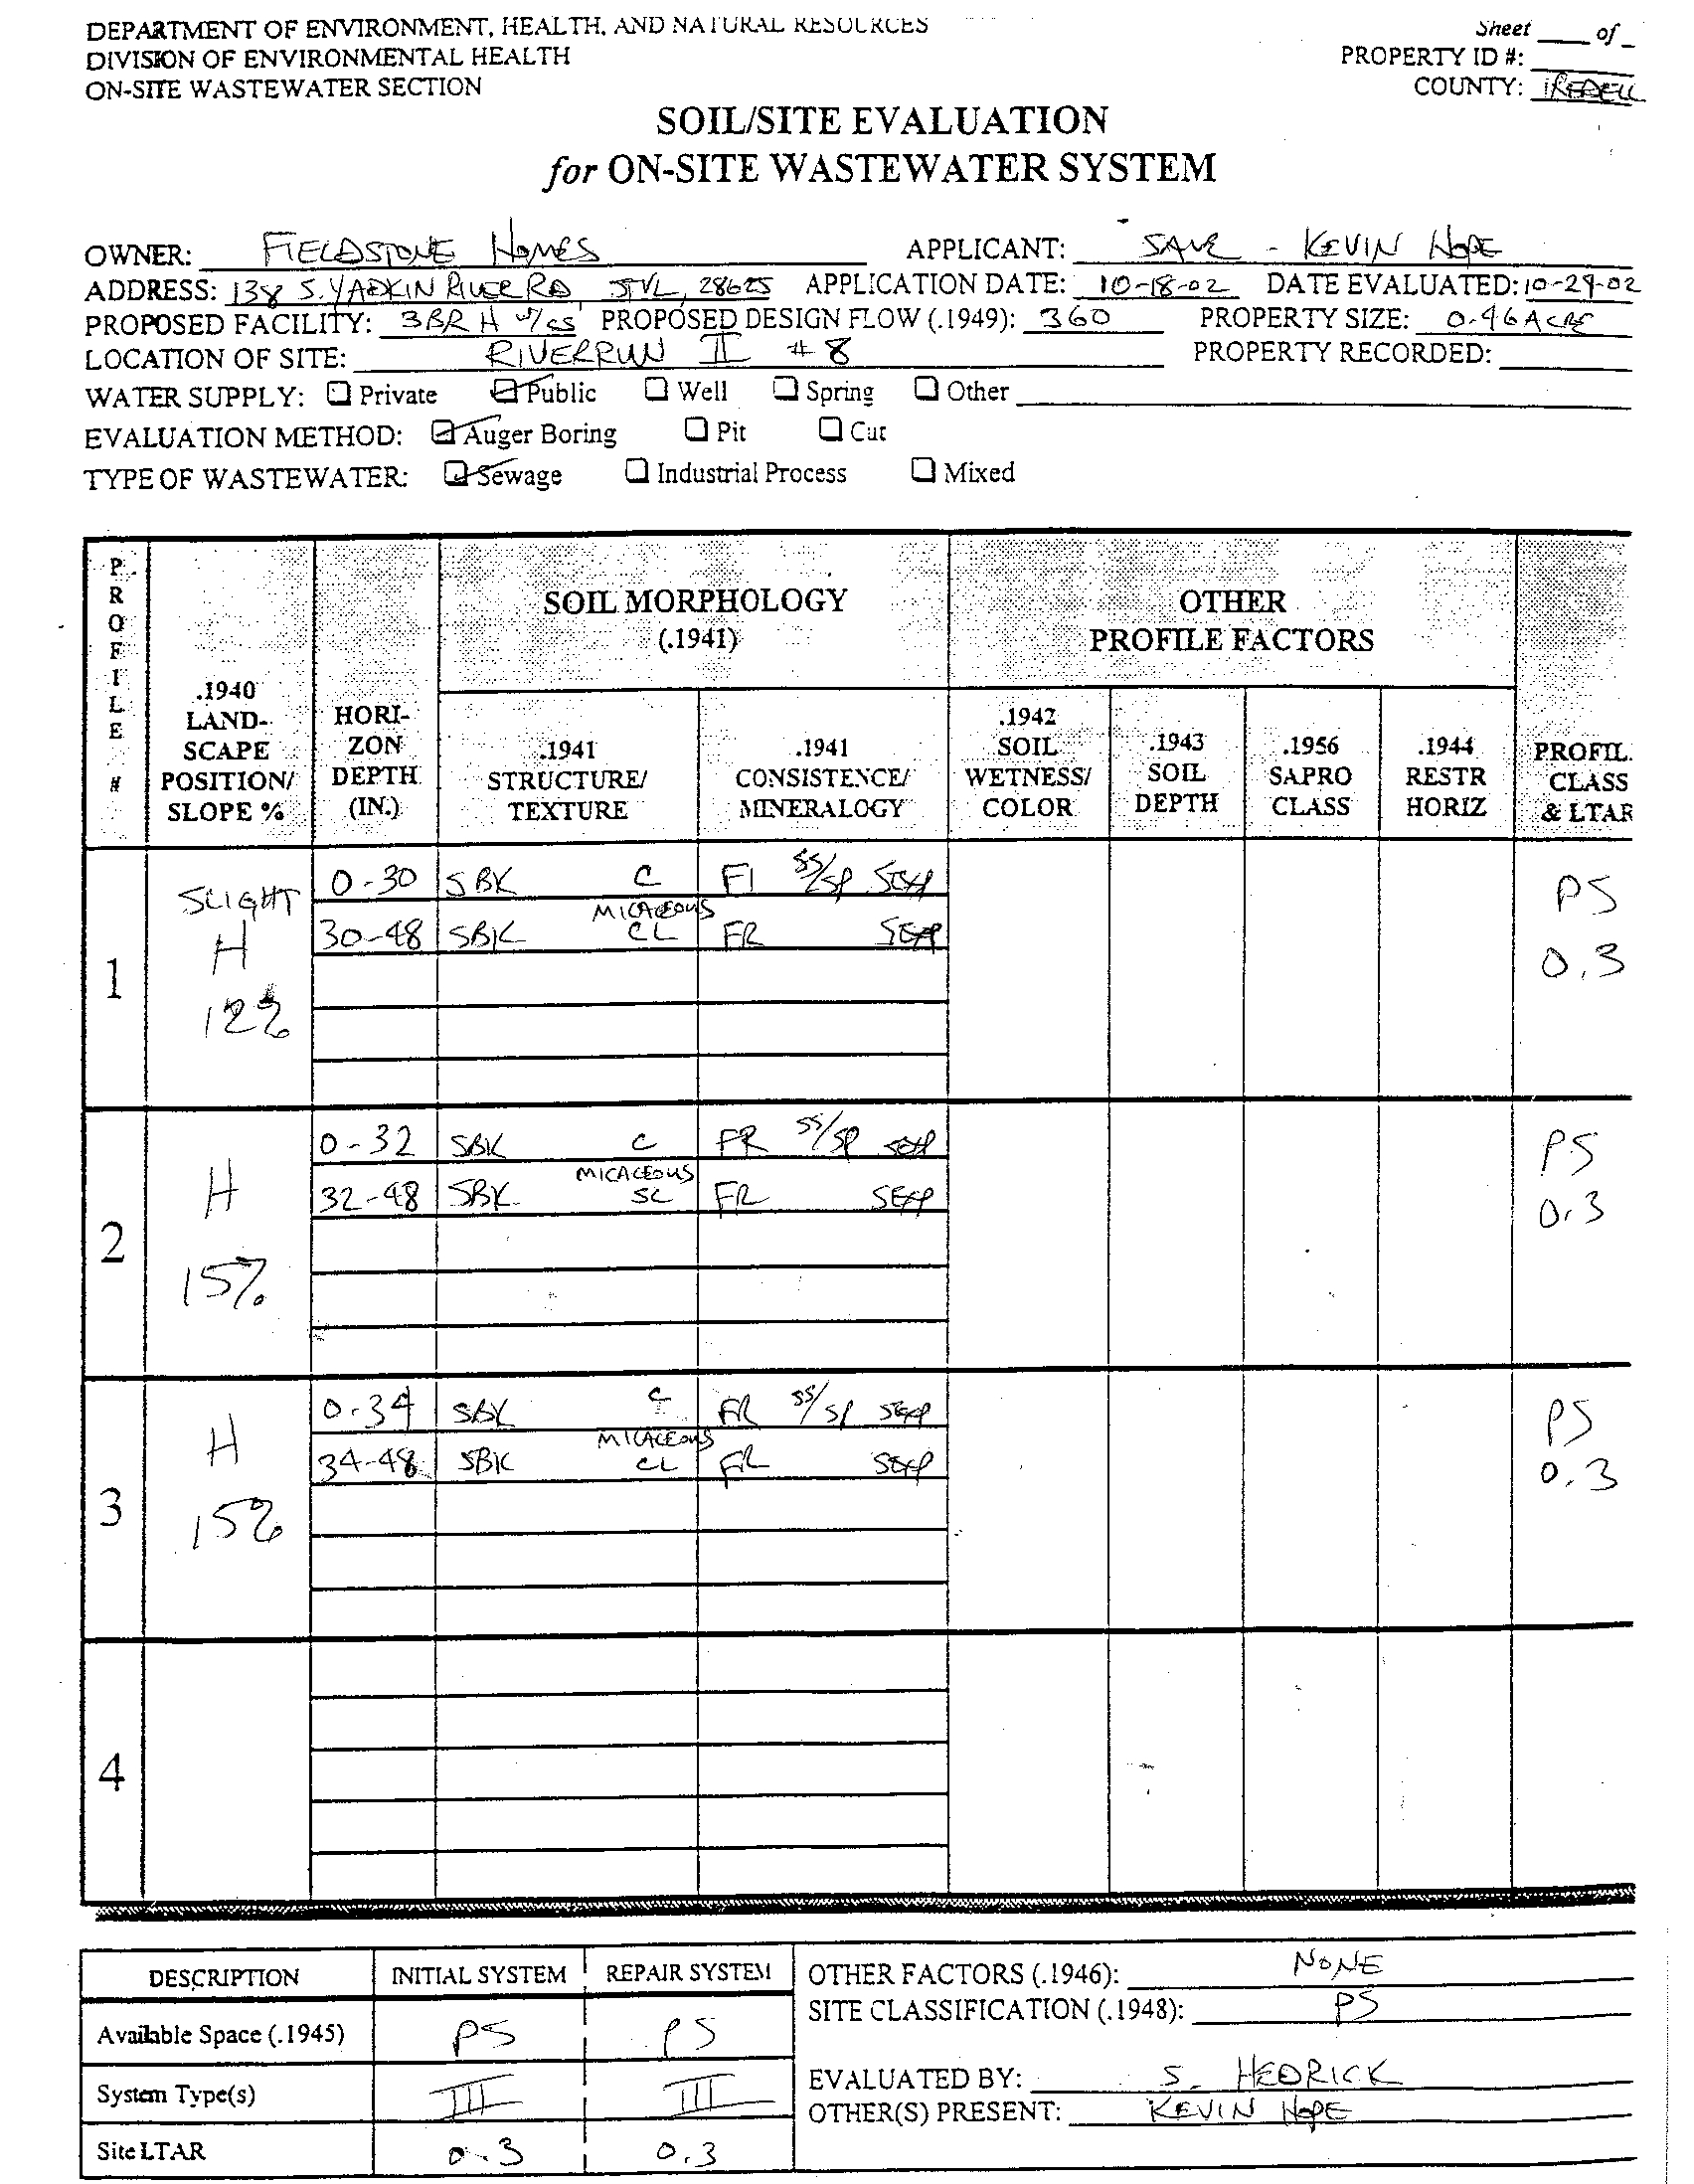 DEPARTMENT OF ENVIRONMENT, HEALTH, AND NATURAL RESOURCES
Sheet ____ of _
DIVISION OF ENVIRONMENTAL HEALTH
PROPERTY ID #:
ON-SITE WASTEWATER SECTION
COUNTY: IREDELL
SOIL/SITE EVALUATION
for ON-SITE WASTEWATER SYSTEM
OWNER: FIELDSTONE HOMES APPLICANT: SAME - KEVIN HOPE
ADDRESS: 138 S. YADKIN RIVER RD, STVL, 28625 APPLICATION DATE: 10-18-02 DATE EVALUATED: 10-29-02
PROPOSED FACILITY: 3BR H w/cs PROPOSED DESIGN FLOW (.1949): 360 PROPERTY SIZE: 0.46 ACRE
LOCATION OF SITE: RIVERRUN II #8 PROPERTY RECORDED:
WATER SUPPLY: Private Public Well Spring Other
EVALUATION METHOD: Auger Boring Pit Cut
TYPE OF WASTEWATER: Sewage Industrial Process Mixed
PROFILE #
.1940 LAND-SCAPE POSITION/ SLOPE %
HORI-ZON DEPTH (IN.)
SOIL MORPHOLOGY (.1941)
.1941 STRUCTURE/ TEXTURE
.1941 CONSISTENCE/ MINERALOGY
OTHER PROFILE FACTORS
.1942 SOIL WETNESS/ COLOR
.1943 SOIL DEPTH
.1956 SAPRO CLASS
.1944 RESTR HORIZ
PROFIL. CLASS & LTAR
1 SLIGHT H 12%
0-30 SBK C FI SS/SP SEXP
30-48 SBK MICACEOUS CL FR SEXP
PS 0.3
2 H 15%
0-32 SBK C FR SS/SP SEXP
32-48 SBK MICACEOUS SL FR SEXP
PS 0.3
3 H 15%
0-34 SBK C FR SS/SP SEXP
34-48 SBK MICACEOUS CL FR SEXP
PS 0.3
4
DESCRIPTION INITIAL SYSTEM REPAIR SYSTEM
Available Space (.1945) PS PS
System Type(s) III III
Site LTAR 0.3 0.3
OTHER FACTORS (.1946): NONE
SITE CLASSIFICATION (.1948): PS
EVALUATED BY: S. HEDRICK
OTHER(S) PRESENT: KEVIN HOPE